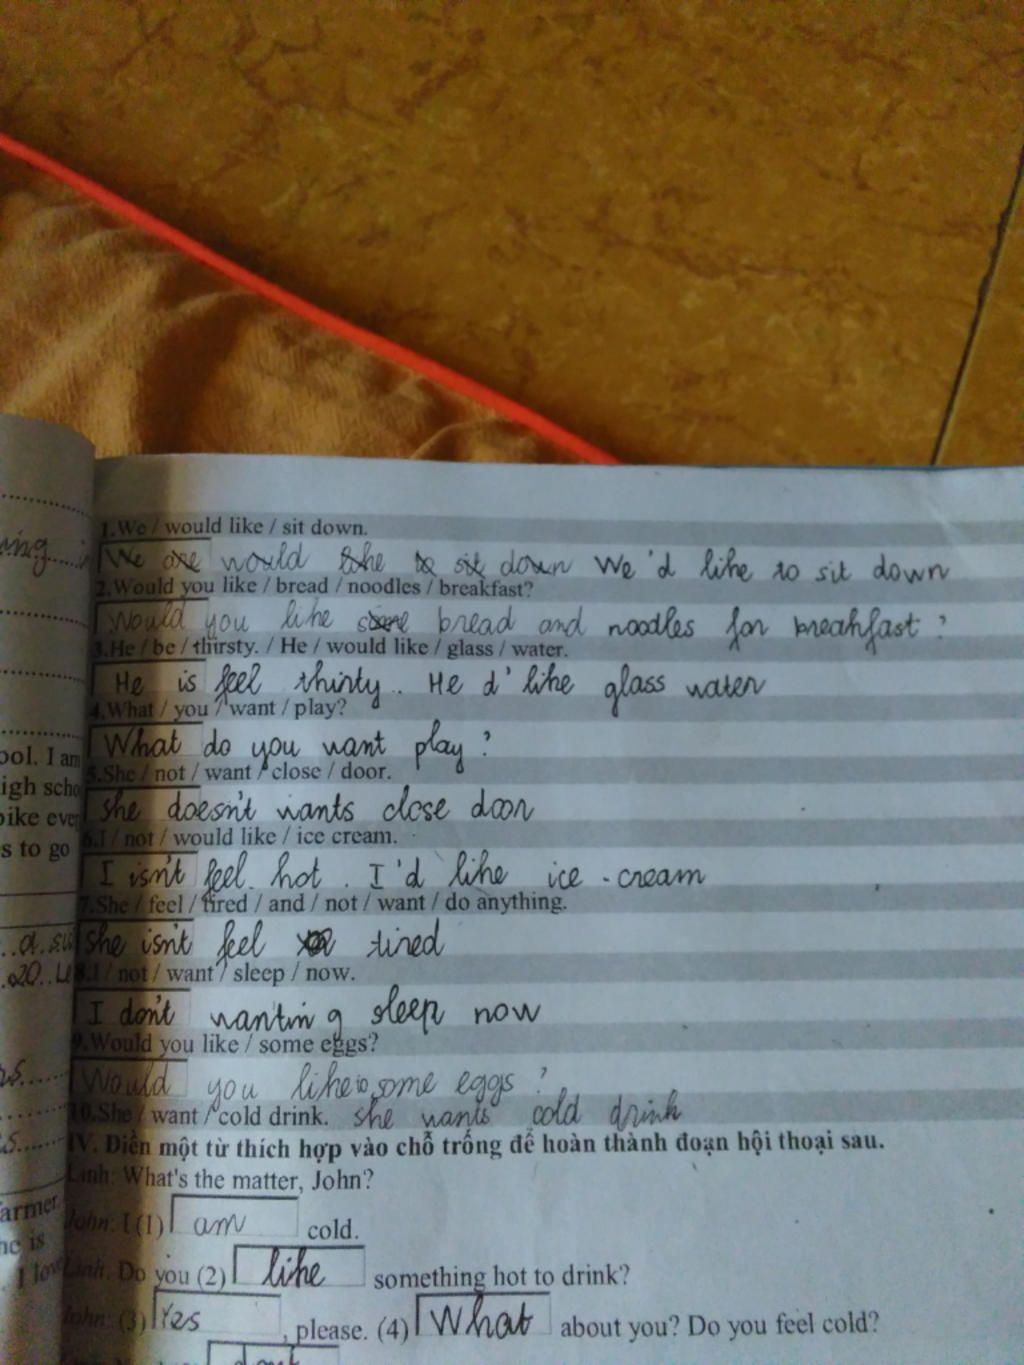 1.We / would like / sit down.
We are would like to sit down We'd like to sit down
2.Would you like / bread / noodles / breakfast?
Would you like some bread and noodles for breakfast?
3.He / be / thirsty. / He / would like / glass / water.
He is feel thirsty.. He d' like glass water
4.What / you / want / play?
What do you want play?
5.She / not / want / close / door.
She doesn't wants close door
6.I / not / would like / ice cream.
I isn't feel hot. I'd like ice-cream
7.She / feel / tired / and / not / want / do anything.
she isn't feel tired
8.I / not / want / sleep / now.
I don't wanting sleep now
9.Would you like / some eggs?
Would you like to some eggs?
10.She / want / cold drink. she wants cold drink
IV. Điền một từ thích hợp vào chỗ trống để hoàn thành đoạn hội thoại sau.
Linh: What's the matter, John?
John: I (1) am cold.
Linh: Do you (2) like something hot to drink?
John: (3) Yes, please. (4) What about you? Do you feel cold?
ool. I am
s to go